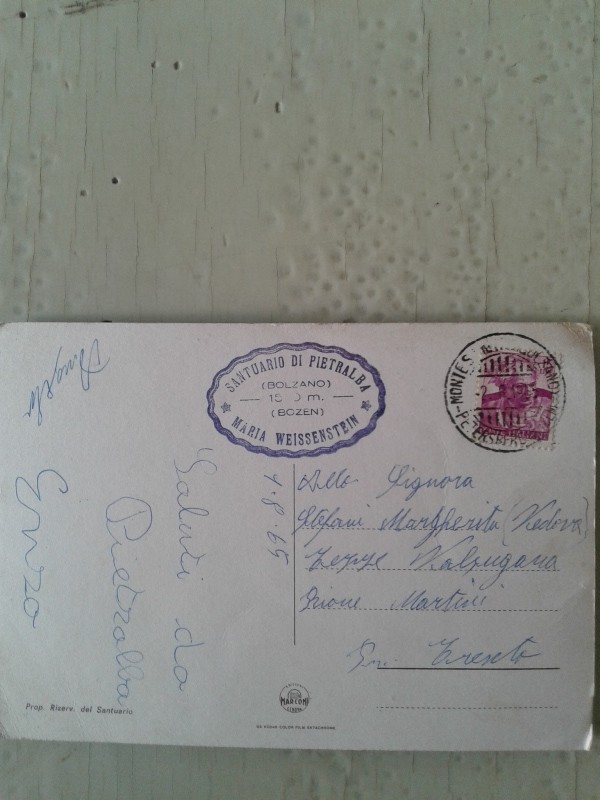 SANTUARIO DI PIETRALBA
(BOLZANO)
m.
(BOZEN)
MARIA WEISSENSTEIN
Saluti da
Pietralba
Enzo
4.8.65
Alla Signora
Stefani Margherita (Vedova)
Valsugana
Rione Martini
Pr. Trento
Prop. Riserv. del Santuario
MARCONI
GENOVA